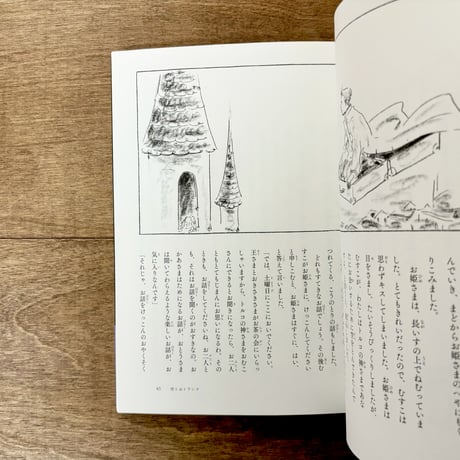 んでいき、まどからお姫さまのへやに
りこみました。
お姫さまは、長いすの上でねむっていま
した。とてもきれいだったので、むすこは
思わずキスしてしまいました。お姫さまは
目をさまし、たいそうびっくりしましたが、
むすこが、わたしはトルコの神さまであな
つれてくる、こうのとりの話もしました。
どれもすてきなお話でしょう。その後む
すこがお姫さまに、けっこんしてください
と申しこむと、お姫さまはすぐに、はい、
と答えて言いました。
「では、土曜日にここにおいでください。
王さまとおきさきさまがお茶の会にいらっ
しゃいますから。トルコの神さまをおむこ
さんにできるとお聞きになったら、お二人
ともとてもじまんにお思いになるわ。その
ときも、お話をしてくださいね。お二人と
も、それはお話を聞くのがおすきなの。お
かあさまはためになるお話が、おとうさま
は聞いてわらえるような楽しいお話が、お
気に入りなんです」
「それじゃ、お話をけっこんのおやくそく
65 空とぶトランク